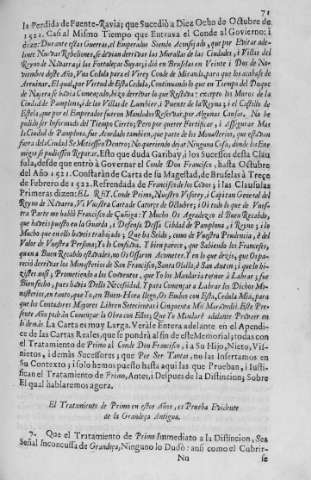 71
la Perdida de Fuente-Ravia; que Sucediò a Diez Ocho de Octubre de
1521. Casi al Mismo Tiempo que Entrava el Conde al Govierno: i
dize: Durante estas Guerras, el Emperador Siendo Aconsejado, que por Evitar ade-
lante Nuevas Rebeliones, se devian derribar las Murallas de las Ciudades, i Villas del
Reyno de Navarra, i las Fortalezas Suyas; diò en Bruselas en Veinte i Dos de No-
viembre deste Año, Una Cedula para el Virey Conde de Miranda, para que los acabase de
Arruinar. El qual, por Virtud de Esta Cedula, Continuando lo que en Tiempo del Duque
de Najera se havia Començado, hizo derribar lo que Restava: excepto los Muros de la
Ciudad de Pamplona, i de las Villas de Lumbier i Puente de la Reyna; i el Castillo de
Estella, que por el Emperador fueron Mandados Reservar, por Algunas Causas. No he
podido ser Informado del Tiempo Cierto; Pero por querer Fortificar, i Assegurar Mas
la Ciudad de Pamplona, fue Acordado tambien, que parte de los Monasterios, que estavan
fuera de la Ciudad Se Metiessen Dentro; No queriendo dexar Ninguna Casa, donde los Ene-
migos se pudiessen Reparar. Esto que duda Garibay, i los Sucessos desta Clau
sula, desde que entrò à Governar el Conde Don Francisco, hasta Octubre
del Año 1521. Constaràn de Carta de su Magestad, de Bruselas à Treçe
de Febrero de 1522. Refrendada de Francisco de los Covos; i las Clausulas
Primeras dizen: EL REY. Conde Primo, Nuestro Visorey, i Capitan General del
Reyno de Navarra, Vi Vuestra Carta de Catorze de Octubre; i Oì todo lo que de Vues-
tra Parte me hablò Francisco de Çuñiga: Y Mucho Os Agradezco el Buen Recabdo,
que haveis puesto en la Guarda, i Defensa Dessa Cibdad de Pamplona, i Reyno; i lo
Mucho que en ello haveis trabajado; Que ha Seido, como de Vuestra Prudencia, i del
Valor de Vuestra Persona, Yo lo Confio. Y bien parece, que Sabiendo los Franceses,
quan a Buen Recabdo estavades, no Os Ossaron Acometer. Y en lo que dezis, que Os pa-
reciò derrivar los Monasterios de San Francisco, Santa Olalla, i San Anton; i que lo hi-
zistes assi, Prometiendo a los Conventos, que Yo los Mandaria tornar à Labrar, fue
Bien fecho, pues haviа Dello Necessidad. Y para Començar a Labrar los Dichos Mo-
nasterios, en tanto, que Yo, en Buen-Hora llego, Os Embio con Esta, Cedula Mia, para
que los Contadores Mayores Libren Setecientos i Cinquenta Mil Maravedis Este Pre-
sente Año, podràn Començar la Obra con Ellos; Que Yo Mandarè adelante Proveer en
lo demàs. La Carta es muy Larga. Veràse Entera adelante en el Apendi-
ce de las Cartas Reales, que se pondrà al fin de este Memorial; todas con
el Tratamiento de Primo al Conde Don Francisco, i a Su Hijo, Nieto, Vis-
nietos, i demàs Sucessores; que Por Ser Tantas, no las Insertamos en
Su Contexto, i solo hemos puesto hasta aqui las que Prueban, i Justi-
fican el Tratamiento de Primo, Antes, i Despues de la Distincion; Sobre
El qual hablaremos agora.
El Tratamiento de Primo en estos Años, es Prueba Evidente
de la Grandeça Antigua.
7. Que el Tratamiento de Primo Immediato a la Distincion, Sea
Señal Inconcussa de Grandeça, Ninguno lo Dudò: ansi como el Cubrir-
Nn
se